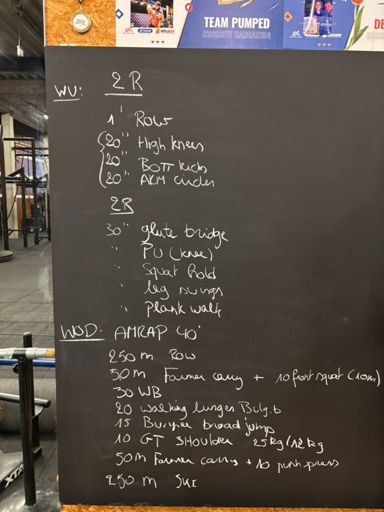 TEAM PUMPED
WU: 2 R
1' Row
20'' High knees
20'' Butt kicks
20'' ARM circles
2R
30'' glute bridge
'' PU (knee)
'' Squat hold
'' leg swings
'' Plank walk
WOD: AMRAP 40'
250 m Row
50m Farmer carry + 10 front squat (10m)
30 WB
20 walking lunges Bulg.b
15 Burpee broad jump
10 GT Shoulder 25kg/12kg
50m Farmer carry + 10 push press
250 m Ski